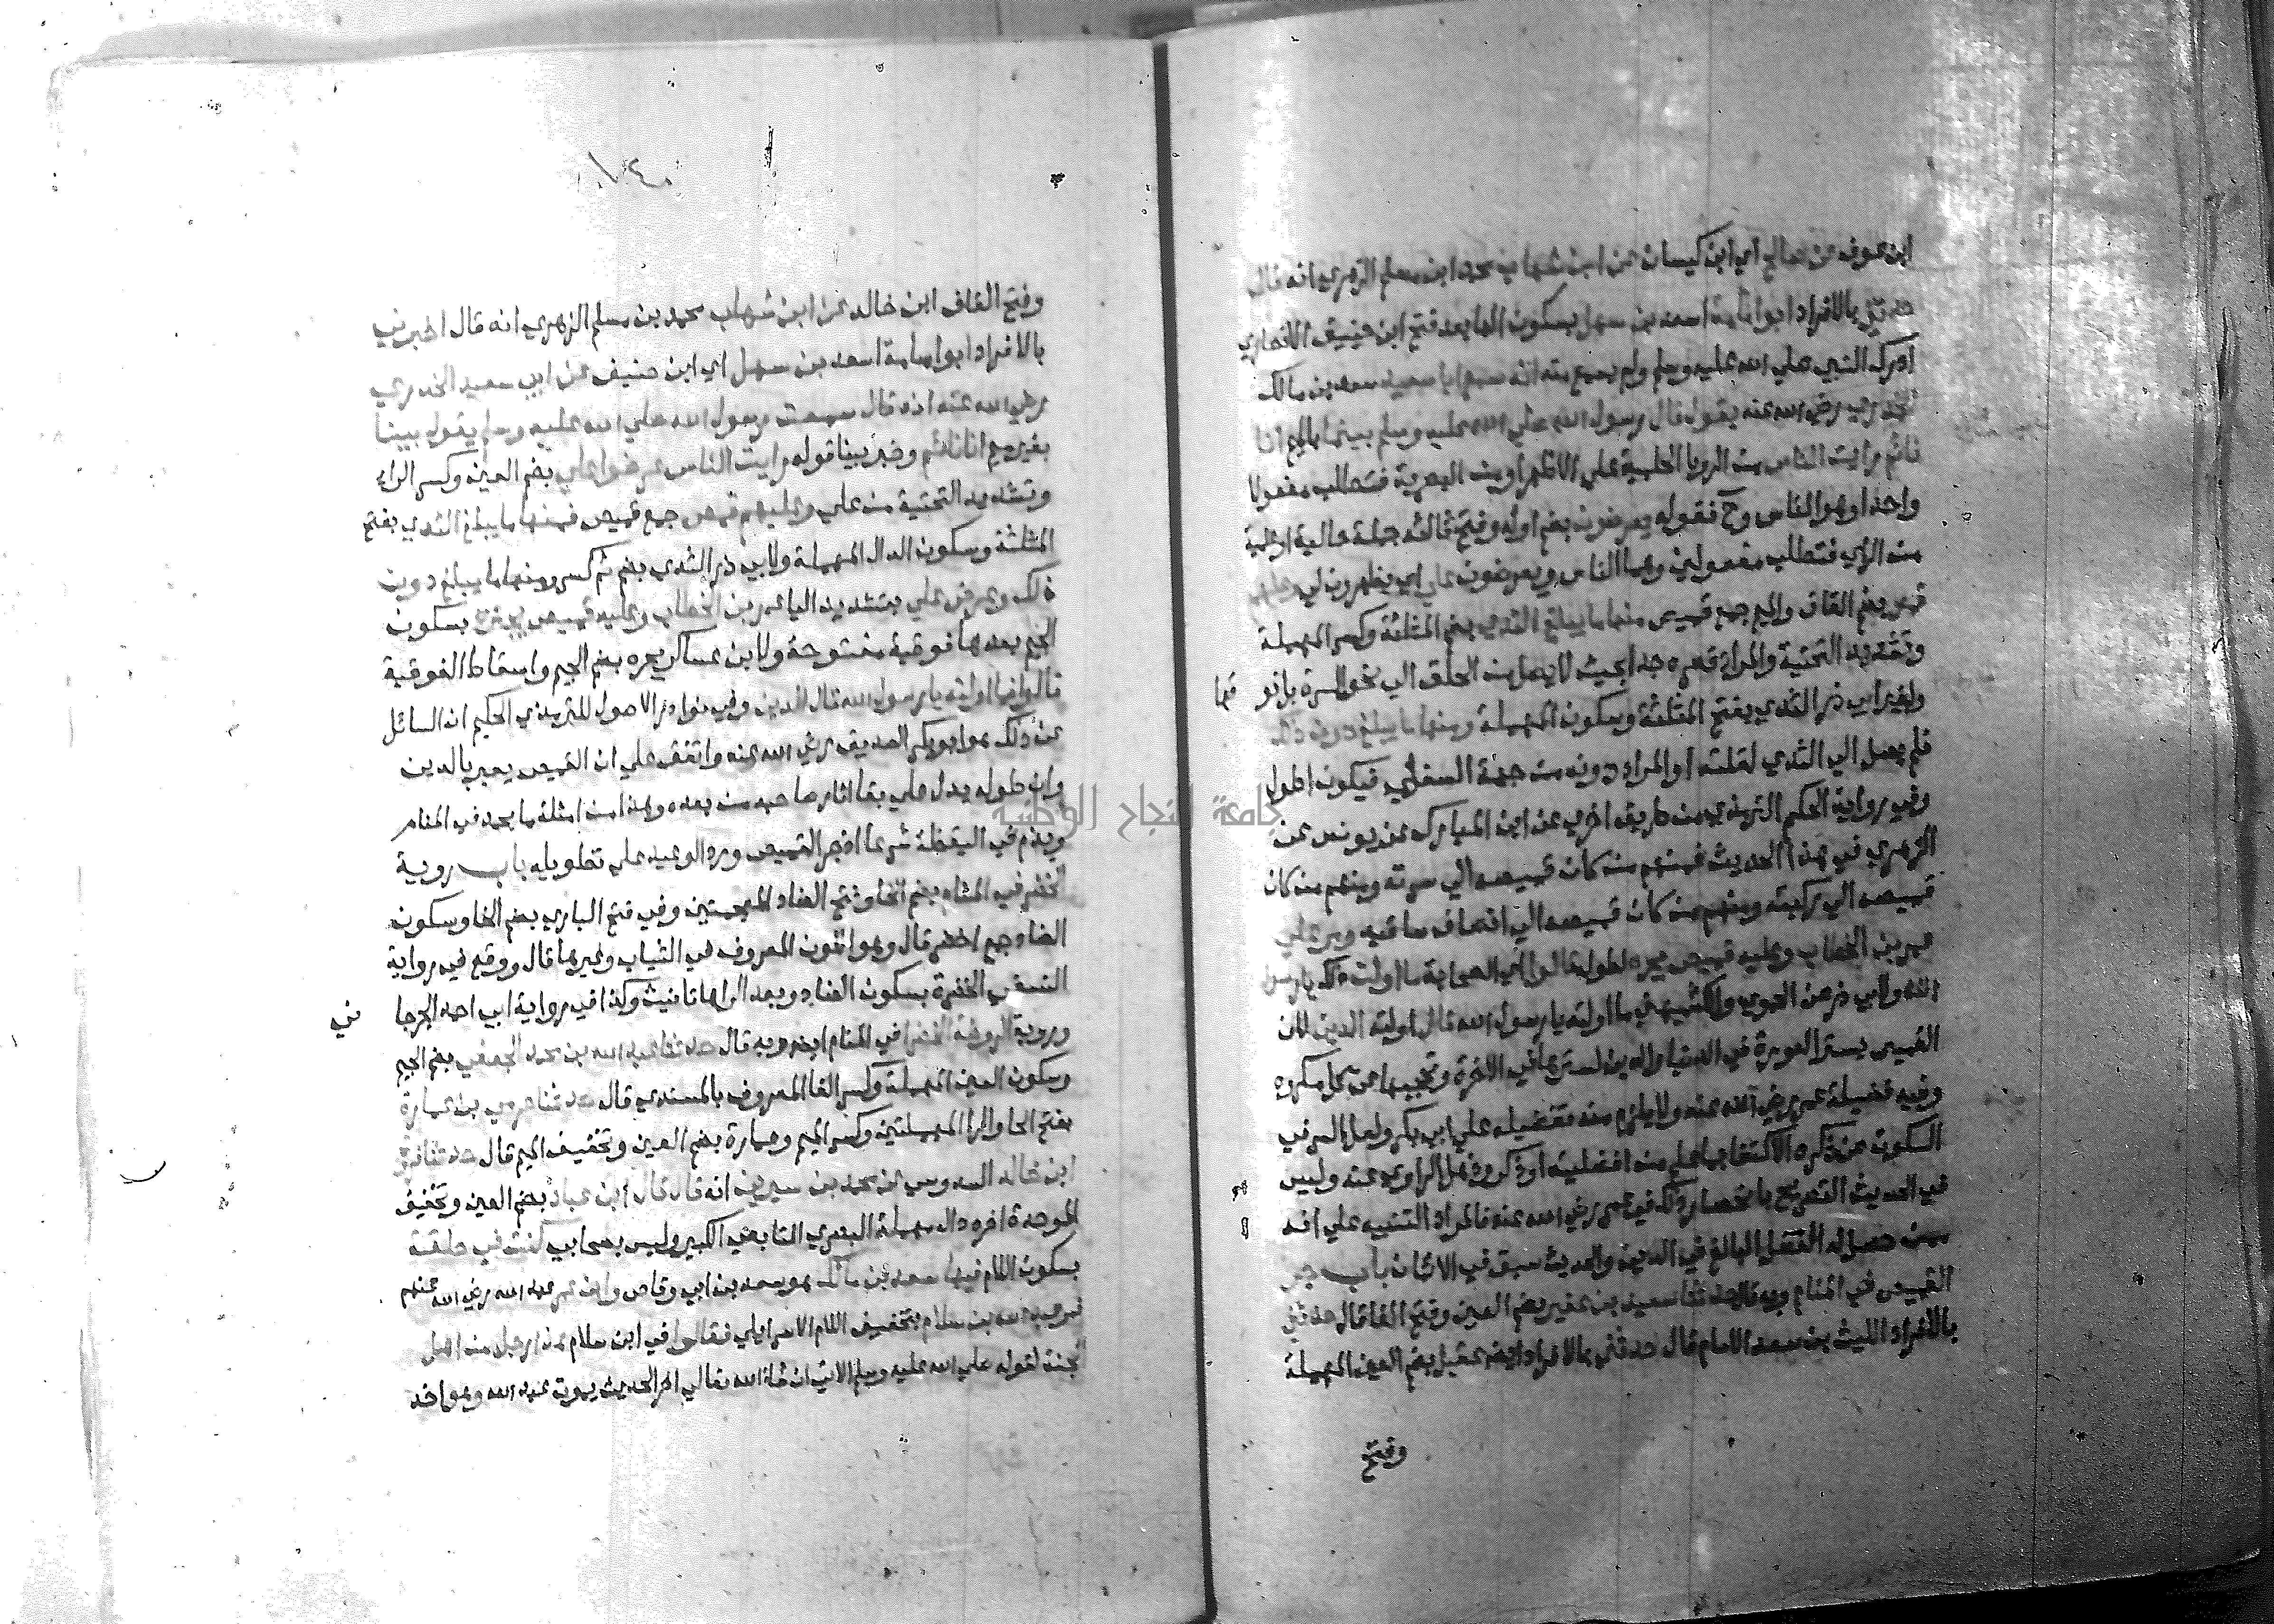 ابن عوف عن صالح اي ابن كيسان عن ابن شهاب محمد ابن مسلم الزهري انه قال
حدثني بالافراد ابو امامة اسعد بن سهل بسكون الها بعد فتح ابن حنيف الانصاري
ادرك النبي صلي الله عليه وسلم ولم يسمع منه انه سمع ابا سعيد سعد بن مالك
الخدري رضي الله عنه يقول قال رسول الله صلي الله عليه وسلم بينما بالميم انا
نائم رايت الناس من الرويا الحلمية علي الاظهر او من البصرية فتطلب مفعولا
واحدا وهو الناس وح فقوله يعرضون بضم اوله وفتح ثالثه جملة حالية او علمية
من الراي فتطلب مفعولين وهما الناس ويعرضون علي اي يظهرون لي وعليهم
قمص بضم القاف والميم جمع قميص منها ما يبلغ الثدي بضم المثلثة وكسر المهملة
وتشديد التحتية والمراد قصره جدا بحيث لا يصل من الحلق الي نحو السرة بل فو قها
ولغير ابي ذر الثدي بفتح المثلثة وسكون المهملة ومنها ما يبلغ دون ذلك
فلم يصل الي الثدي لقلته او المراد دونه من جهة السفلي فيكون اطول
وفي رواية الحكيم الترمذي من طريق اخري عن ابن المبارك عن يونس عن
الزهري في هذا الحديث فمنهم من كان قميصه الي سرته ومنهم من كان
قميصه الي ركبته ومنهم من كان قميصه الي انصاف ساقيه ومر علي
عمر بن الخطاب وعليه قميص يجره لطوله قالوا اي الصحابة ما اولت ذلك يا رسول
الله ولابي ذر عن الحموي والكشميهني ما اولته يا رسول الله قال اولته الدين لان
القميص يستر العورة في الدنيا والدين يسترها في الاخرة ويحجبها عن كل مكروه
وفيه فضيلة عمر رضي الله عنه ولا يلزم منه تفضيله علي ابي بكر ولعل السر في
السكوت عن ذكره الاكتفا بما علم من افضليته او ذكر وذهل الراوي عنه وليس
في الحديث التصريح بانحصار ذلك في عمر رضي الله عنه فالمراد التنبيه علي انه
ممن حصل له الفضل البالغ في الدين والحديث سبق في الايمان باب جر
القميص في المنام وبه قال حدثنا سعيد بن عفير بضم العين وفتح الفا قال حدثني
بالافراد الليث بن سعد الامام قال حدثني بالافراد ايضا عقيل بضم العين المهملة
وفتح
١٤٠
وفتح القاف ابن خالد عن ابن شهاب محمد بن مسلم الزهري انه قال اخبرني
بالافراد ابو امامة اسعد بن سهل اي ابن حنيف عن ابي سعيد الخدري
رضي الله عنه انه قال سمعت رسول الله صلي الله عليه وسلم يقول بينا
بغير ميم انا نائم وخبر بينا قوله رايت الناس عرضوا علي بضم العين وكسر الراء
وتشديد التحتية من علي وعليهم قمص جمع قميص فمنها ما يبلغ الثدي بفتح
المثلثة وسكون الدال المهملة ولابي ذر الثدي بضم ثم كسر ومنها ما يبلغ دون
ذلك وعرض علي بتشديد اليا عمر بن الخطاب وعليه قميص يجتره بسكون
الجيم بعدها فوقية مفتوحة ولابن عساكر يجره بضم الجيم واسقاط الفوقية
قالوا فما اولته يا رسول الله قال الدين وفي نوادر الاصول للترمذي الحكيم ان السائل
عن ذلك هو ابو بكر الصديق رضي الله عنه واتفق علي ان القميص يعبر بالدين
وان طوله يدل علي بقا اثار صاحبه من بعده وهذا من امثلة ما يحمد في المنام
ويذم في اليقظة شرعا اذ جر القميص ورد الوعيد علي تطويله باب روية
الخضر في المنام بضم الخا وفتح الضاد المعجمتين وفي فتح الباري بضم الخا وسكون
الضاد جمع اخضر قال وهو اللون المعروف في الثياب وغيرها قال ووقع في رواية
النسفي الخضرة بسكون الضاد وبعد الراها تانيث وكذا في رواية ابي احمد الجرجا ني
وروية الروضة الخضرا في المنام ايضا وبه قال حدثنا عبد الله بن محمد الجعفي بضم الجيم
وسكون العين المهملة وكسر الفا المعروف بالمسندي قال حدثنا حرمي بن عمارة
بفتح الحا والرا المهملتين وكسر الميم وعمارة بضم العين وتخفيف الميم قال حدثنا قرة
ابن خالد السدوسي عن محمد بن سيرين انه قال قال ابن عباد بضم العين وتخفيف
الموحدة اخره دال مهملة البصري التابعي الكبير وليس بصحابي كنت في حلقة
بسكون اللام فيها سعد بن مالك هو سعد بن ابي وقاص وابن عمر عبد الله رضي الله عنهم
فمر عبد الله بن سلام بتخفيف اللام الاسرائيلي فقالوا في ابن سلام هذا رجل من اهل
الجنة لقوله صلي الله عليه وسلم الاتي ان شاء الله تعالي اخر الحديث يموت عبد الله وهو اخذ
جامعة النجاح الوطنية